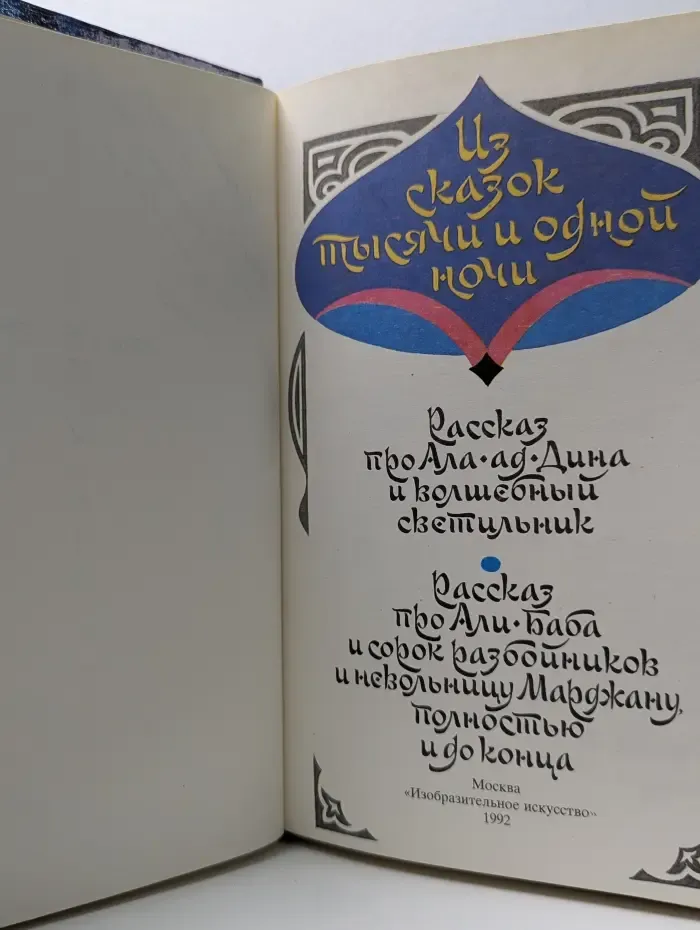 Из
сказок
тысячи и одной
ночи
Рассказ
про Ала-ад-Дина
и волшебный
светильник
Рассказ
про Али-Баба
и сорок разбойников
и невольницу Марджану,
полностью
и до конца
Москва
«Изобразительное искусство»
1992